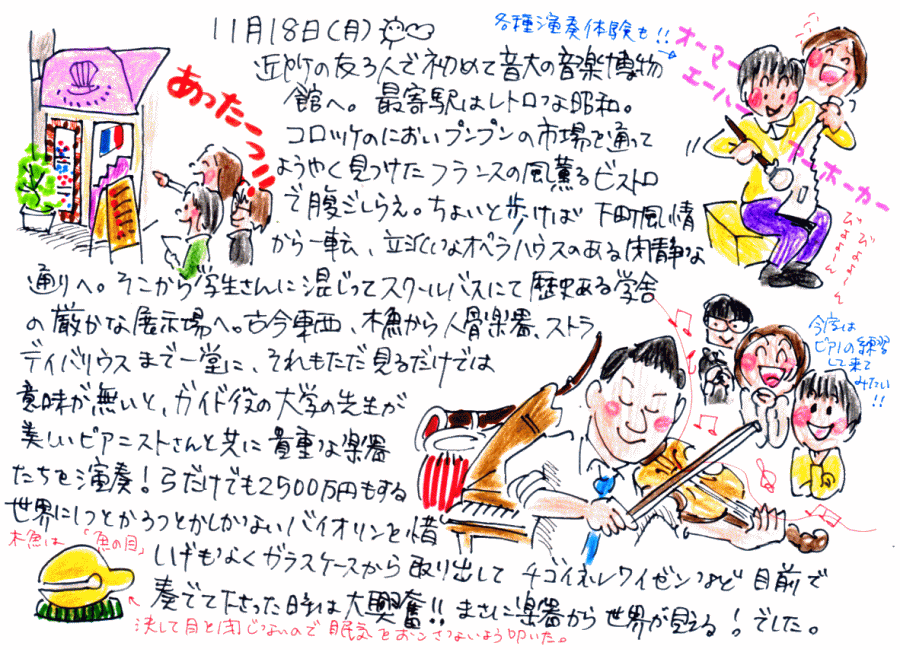 11月18日(月)
各種演奏体験も!!
オーマー
エーハー
アーホーカー
びよよーん
びよよーん
あったーっ!!
近所の友3人で初めて音大の音楽博物
館へ。最寄駅はレトロな昭和。
コロッケのにおいプンプンの市場を通って
ようやく見つけたフランスの風薫るビストロ
で腹ごしらえ。ちょいと歩けば下町風情
から一転、立派なオペラハウスのある閑静な
通りへ。そこから学生さんに混じってスクールバスにて歴史ある学舎
の厳かな展示場へ。古今東西、木魚から人骨楽器、ストラ
ディバリウスまで一堂に、それもただ見るだけでは
意味が無いと、ガイド役の大学の先生が
美しいピアニストさんと共に貴重な楽器
たちを演奏!弓だけでも2500万円もする
世界に1つとか3つとかしかないバイオリンを惜
しげもなくガラスケースから取り出してチゴイネルワイゼンなど目前で
奏でて下さった時は大興奮!!まさに楽器から世界が見える!でした。
今度は
ピアノの練習
して来て
みたい
!!
木魚は「魚の目」
決して目を閉じないので眠気をおこさないよう叩いた。